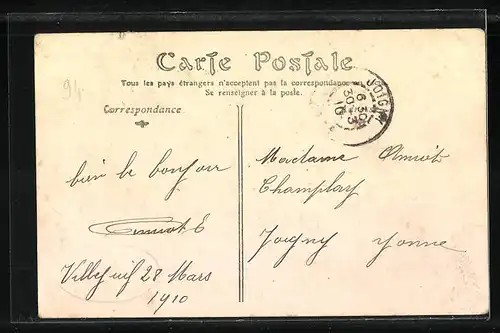 Carte Postale
Tous les pays étrangers n'acceptent pas la correspondance
Se renseigner à la poste.
94
Correspondance
JOIGNY
6 30
30-3
10
bien le bonjour
Amiot E
Villejuif 28 Mars
1910
Madame Amiot
Champlay
Joigny Yonne